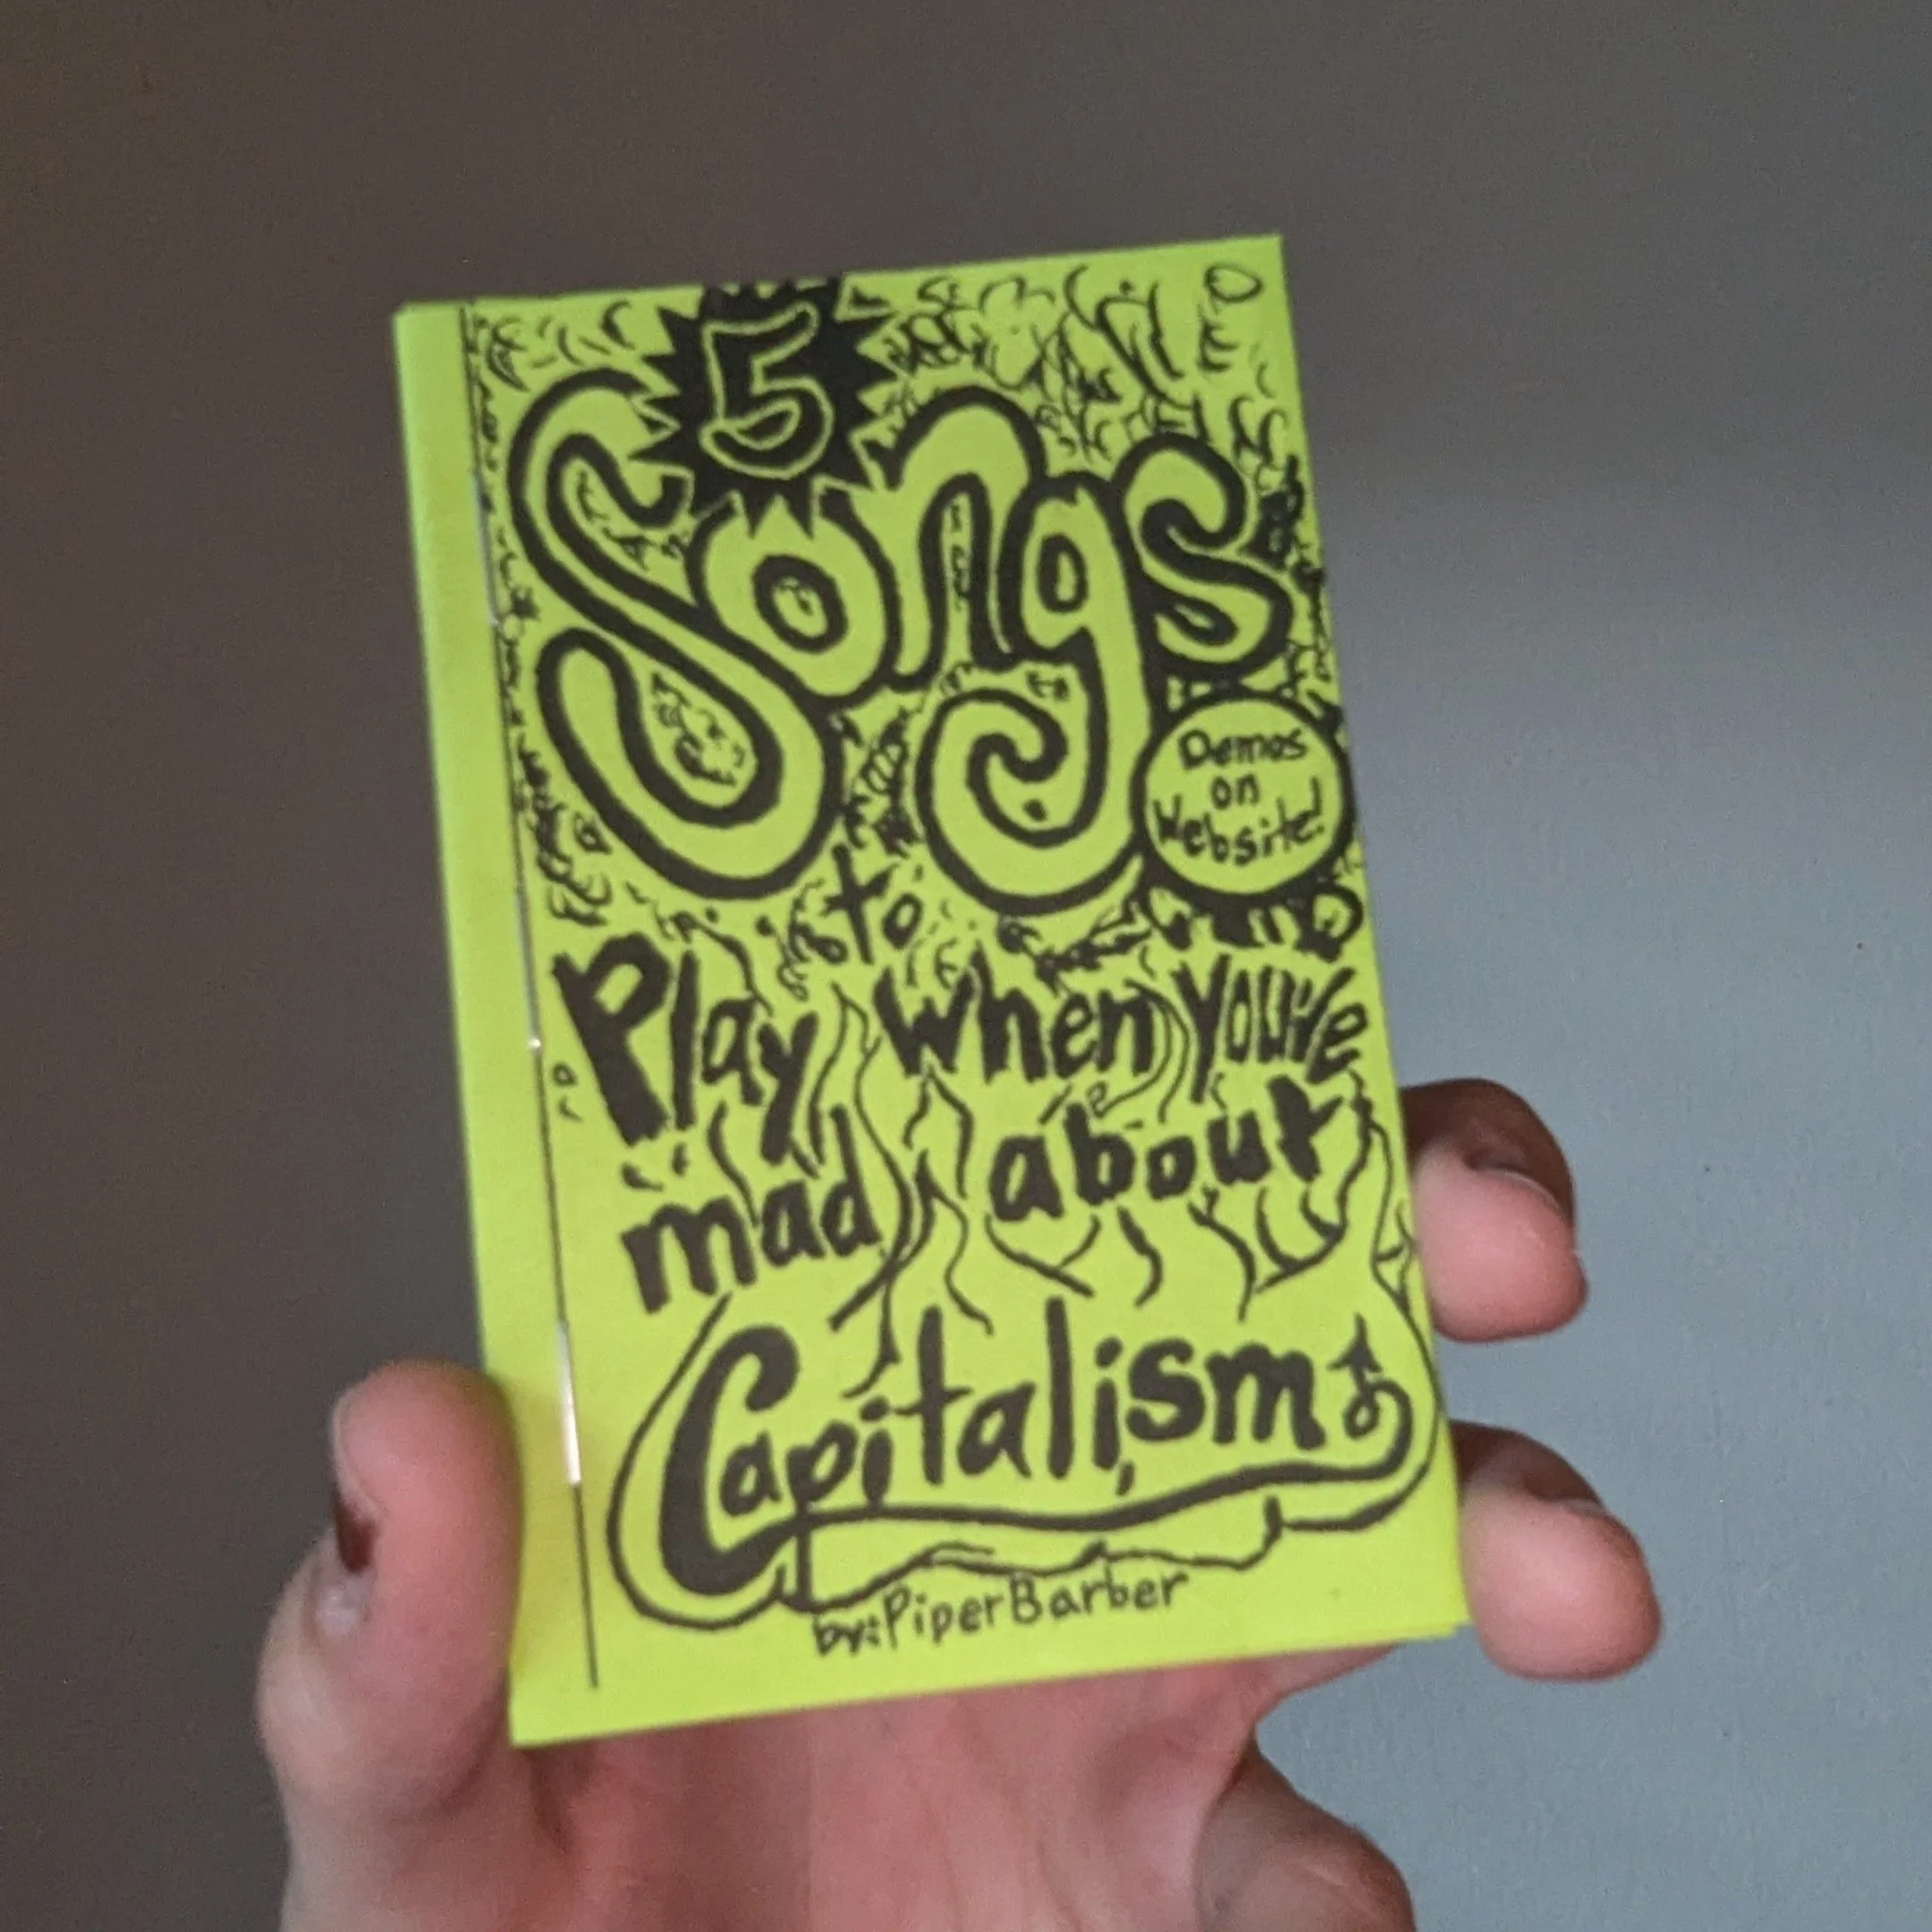 5
Songs
Demos
on
Website!
to
Play when you've
mad about
Capitalism
by: Piper Barber